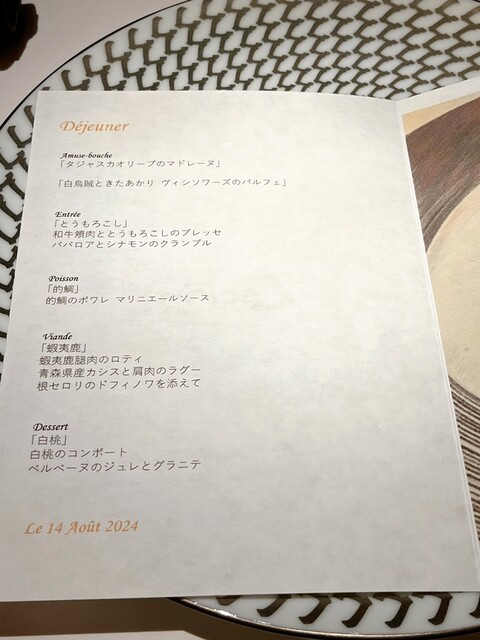 Déjeuner
Amuse-bouche
「タジャスカオリーブのマドレーヌ」
「白烏賊ときたあかり ヴィシソワーズのパルフェ」
Entrée
「とうもろこし」
和牛頬肉ととうもろこしのプレッセ
ババロアとシナモンのクランブル
Poisson
「的鯛」
的鯛のポワレ マリニエールソース
Viande
「蝦夷鹿」
蝦夷鹿腿肉のロティ
青森県産カシスと肩肉のラグー
根セロリのドフィノワを添えて
Dessert
「白桃」
白桃のコンポート
ベルベーヌのジュレとグラニテ
Le 14 Août 2024